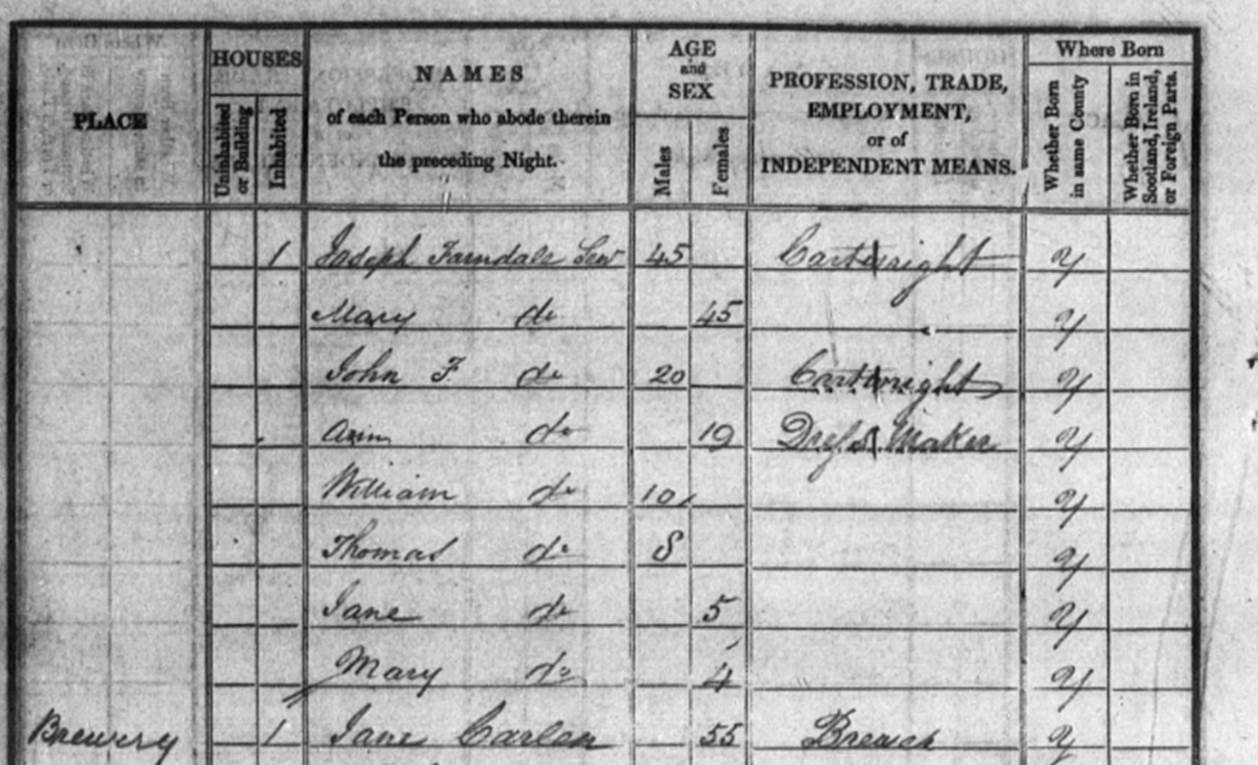 PLACE HOUSES Uninhabited or Building Inhabited NAMES of each Person who abode therein the preceding Night. AGE and SEX Males Females PROFESSION, TRADE, EMPLOYMENT, or of INDEPENDENT MEANS. Where Born Whether Born in same County Whether Born in Scotland, Ireland, or Foreign Parts.
1 Joseph Farndale Sen 45 Cartwright Y
Mary do 45 Y
John F. do 20 Cartwright Y
do 19 Dress Maker Y
William do 10 Y
Thomas do 8 Y
Jane do 5 Y
Mary do 4 Y
Brewery 1 Jane 55 Y